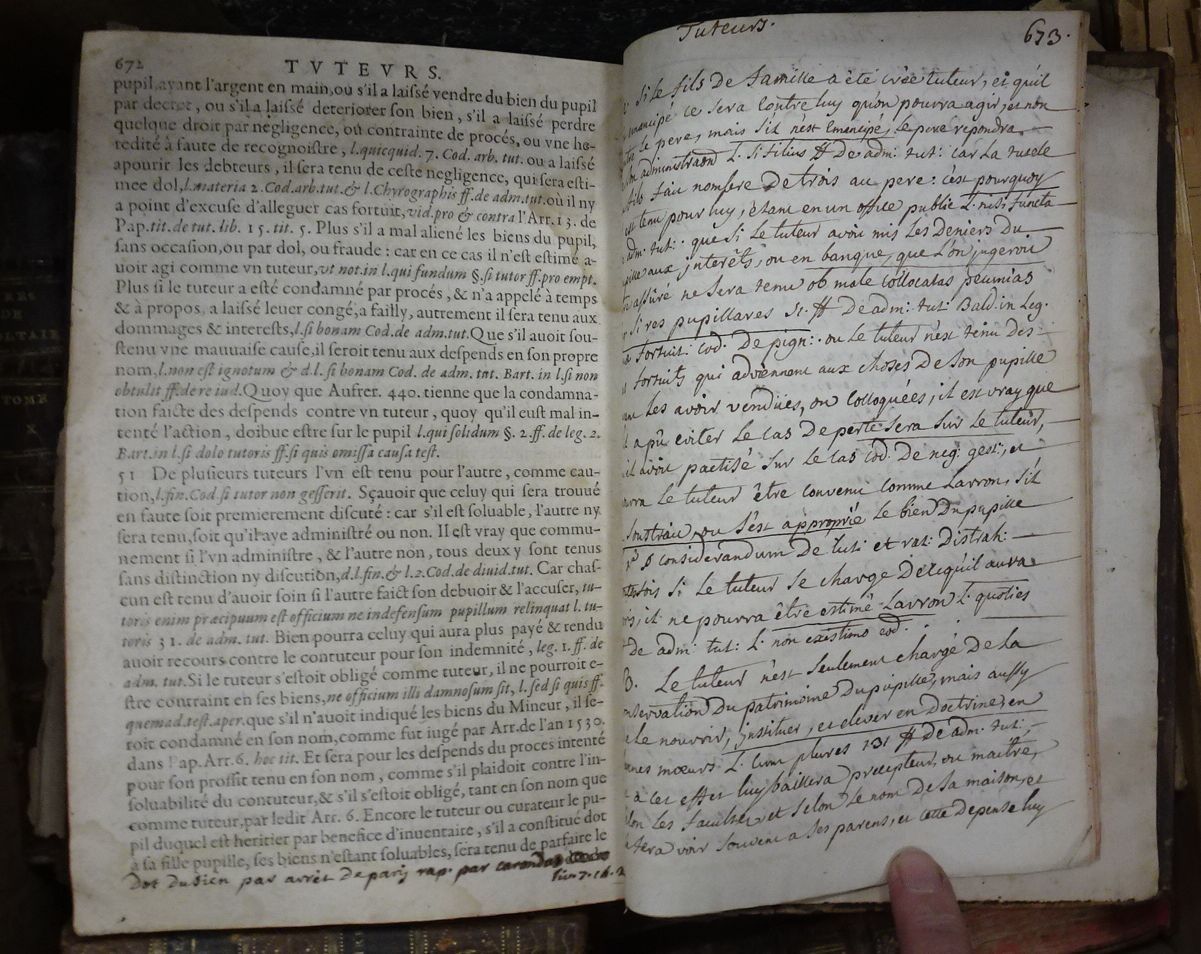 672 TVTEVRS.
pupil, ayant l'argent en main, ou s'il a laissé vendre du bien du pupil
par decret, ou s'il a laissé deteriorer son bien, s'il a laissé perdre
quelque droit par negligence, ou contrainte de procés, ou vne he-
redité à faute de recognoistre, l. quicquid. 7. Cod. arb. tut. ou a laissé
apourir les debteurs, il sera tenu de ceste negligence, qui sera esti-
mee dol, l. materia 2. Cod. arb. tut. & l. Chyrographis ff. de adm. tut. où il ny
a point d'excuse d'alleguer cas fortuit, vid. pro & contra l'Arr. 13. de
Pap. tit. de tut. lib. 15. tit. 5. Plus s'il a mal aliené les biens du pupil,
sans occasion, ou par dol, ou fraude : car en ce cas il n'est estimé a-
uoir agi comme vn tuteur, vt not. in l. qui fundum §. si tutor ff. pro empt.
Plus si le tuteur a esté condamné par procés, & n'a appelé à temps
& à propos, a laissé leuer congé, a failly, autrement il sera tenu aux
dommages & interests, l. si bonam Cod. de adm. tut. Que s'il auoit sou-
stenu vne mauuaise cause, il seroit tenu aux despends en son propre
nom, l. non est ignotum & d. l. si bonam Cod. de adm. tut. Bart. in l. si non
obtulit ff. de re iud. Quoy que Aufrer. 440. tienne que la condamna-
tion faicte des despends contre vn tuteur, quoy qu'il eust mal in-
tenté l'action, doibue estre sur le pupil l. qui solidum §. 2. ff. de leg. 2.
Bart. in l. si dolo tutoris ff. si quis omissa causa test.
51 De plusieurs tuteurs l'vn est tenu pour l'autre, comme cau-
tion, l. fin. Cod. si tutor non gesserit. Sçauoir que celuy qui sera trouué
en faute soit premierement discuté : car s'il est soluable, l'autre ny
sera tenu, soit qu'il aye administré ou non. Il est vray que commu-
nement si l'vn administre, & l'autre non, tous deux y sont tenus
sans distinction ny discution, d. l. fin. & l. 2. Cod. de diuid. tut. Car chas-
cun est tenu d'auoir soin si l'autre faict son debuoir & l'accuser, tu-
toris enim præcipuum est officium ne indefensum pupillum relinquat l. tu-
toris 31. de adm. tut. Bien pourra celuy qui aura plus payé & rendu
auoir recours contre le contuteur pour son indemnité, leg. 1. ff. de
adm. tut. Si le tuteur s'estoit obligé comme tuteur, il ne pourroit e-
stre contraint en ses biens, ne officium illi damnosum sit, l. sed si quis ff.
quemad. test. aper. que s'il n'auoit indiqué les biens du Mineur, il se-
roit condamné en son nom, comme fut iugé par Arr. de l'an 1530.
dans Pap. Arr. 6. hoc tit. Et sera pour les despends du proces intenté
pour son proffit tenu en son nom, comme s'il plaidoit contre l'in-
soluabilité du contuteur, & s'il s'estoit obligé, tant en son nom que
comme tuteur, par ledit Arr. 6. Encore le tuteur ou curateur le pu-
pil duquel est heritier par benefice d'inuentaire, s'il a constitué dot
à sa fille pupille, ses biens n'estant soluables, sera tenu de parfaire le
Dot du sien par arrêt de paris rap. par carondas
liu. 7. ch. 2
Tuteurs. 673.
Si le fils de famille a été crée tuteur, et qu'il
emancipé ce sera contre luy qu'on pourra agir, et non
le pere, mais s'il n'est emancipé, le pere répondra
administraõn L. si filius ff de adm: tut: car la tutele
fils fait nombre de trois au pere: c'est pourquoy
est tenu pour luy, étant en un office public
adm: tut: que si le tuteur avoit mis les deniers du
pille aux interêts, ou en banque, que l'on jugeroit
assuré ne sera tenu ob male collocatas pecunias
si res pupillares ff de adm: tut: Bald in Leg.
fortuit: cod. De pign: ou le tuteur n'est tenu des
fortuits qui adviennent aux choses de son pupille
les avoir vendües, ou colloquées; il est vray que
a pû eviter le cas de perte sera sur le tuteur,
il avoit pactisé sur le cas cod. de neg: gest: et
le tuteur être convenu comme Larron, s'il
soustrait, ou s'est approprié le bien du pupille
considerandum de tut: et rat: distrah:
si le tuteur se charge de ce qu'il aura
il ne pourra être estimé Larron L. quoties
de adm: tut: L. non existimo eod.
Le tuteur n'est seulement chargé de la
conservation du patrimoine du pupille, mais aussy
de le nourrir, instituer, et elever en doctrine, en
bonnes mœurs L. cum plures 131 ff de adm: tut:
à cet effet luy baillera precepteur, ou maitre,
selon les facultes, et selon le nom de sa maison, et
fera voir souvent a ses parens, et cette depense luy